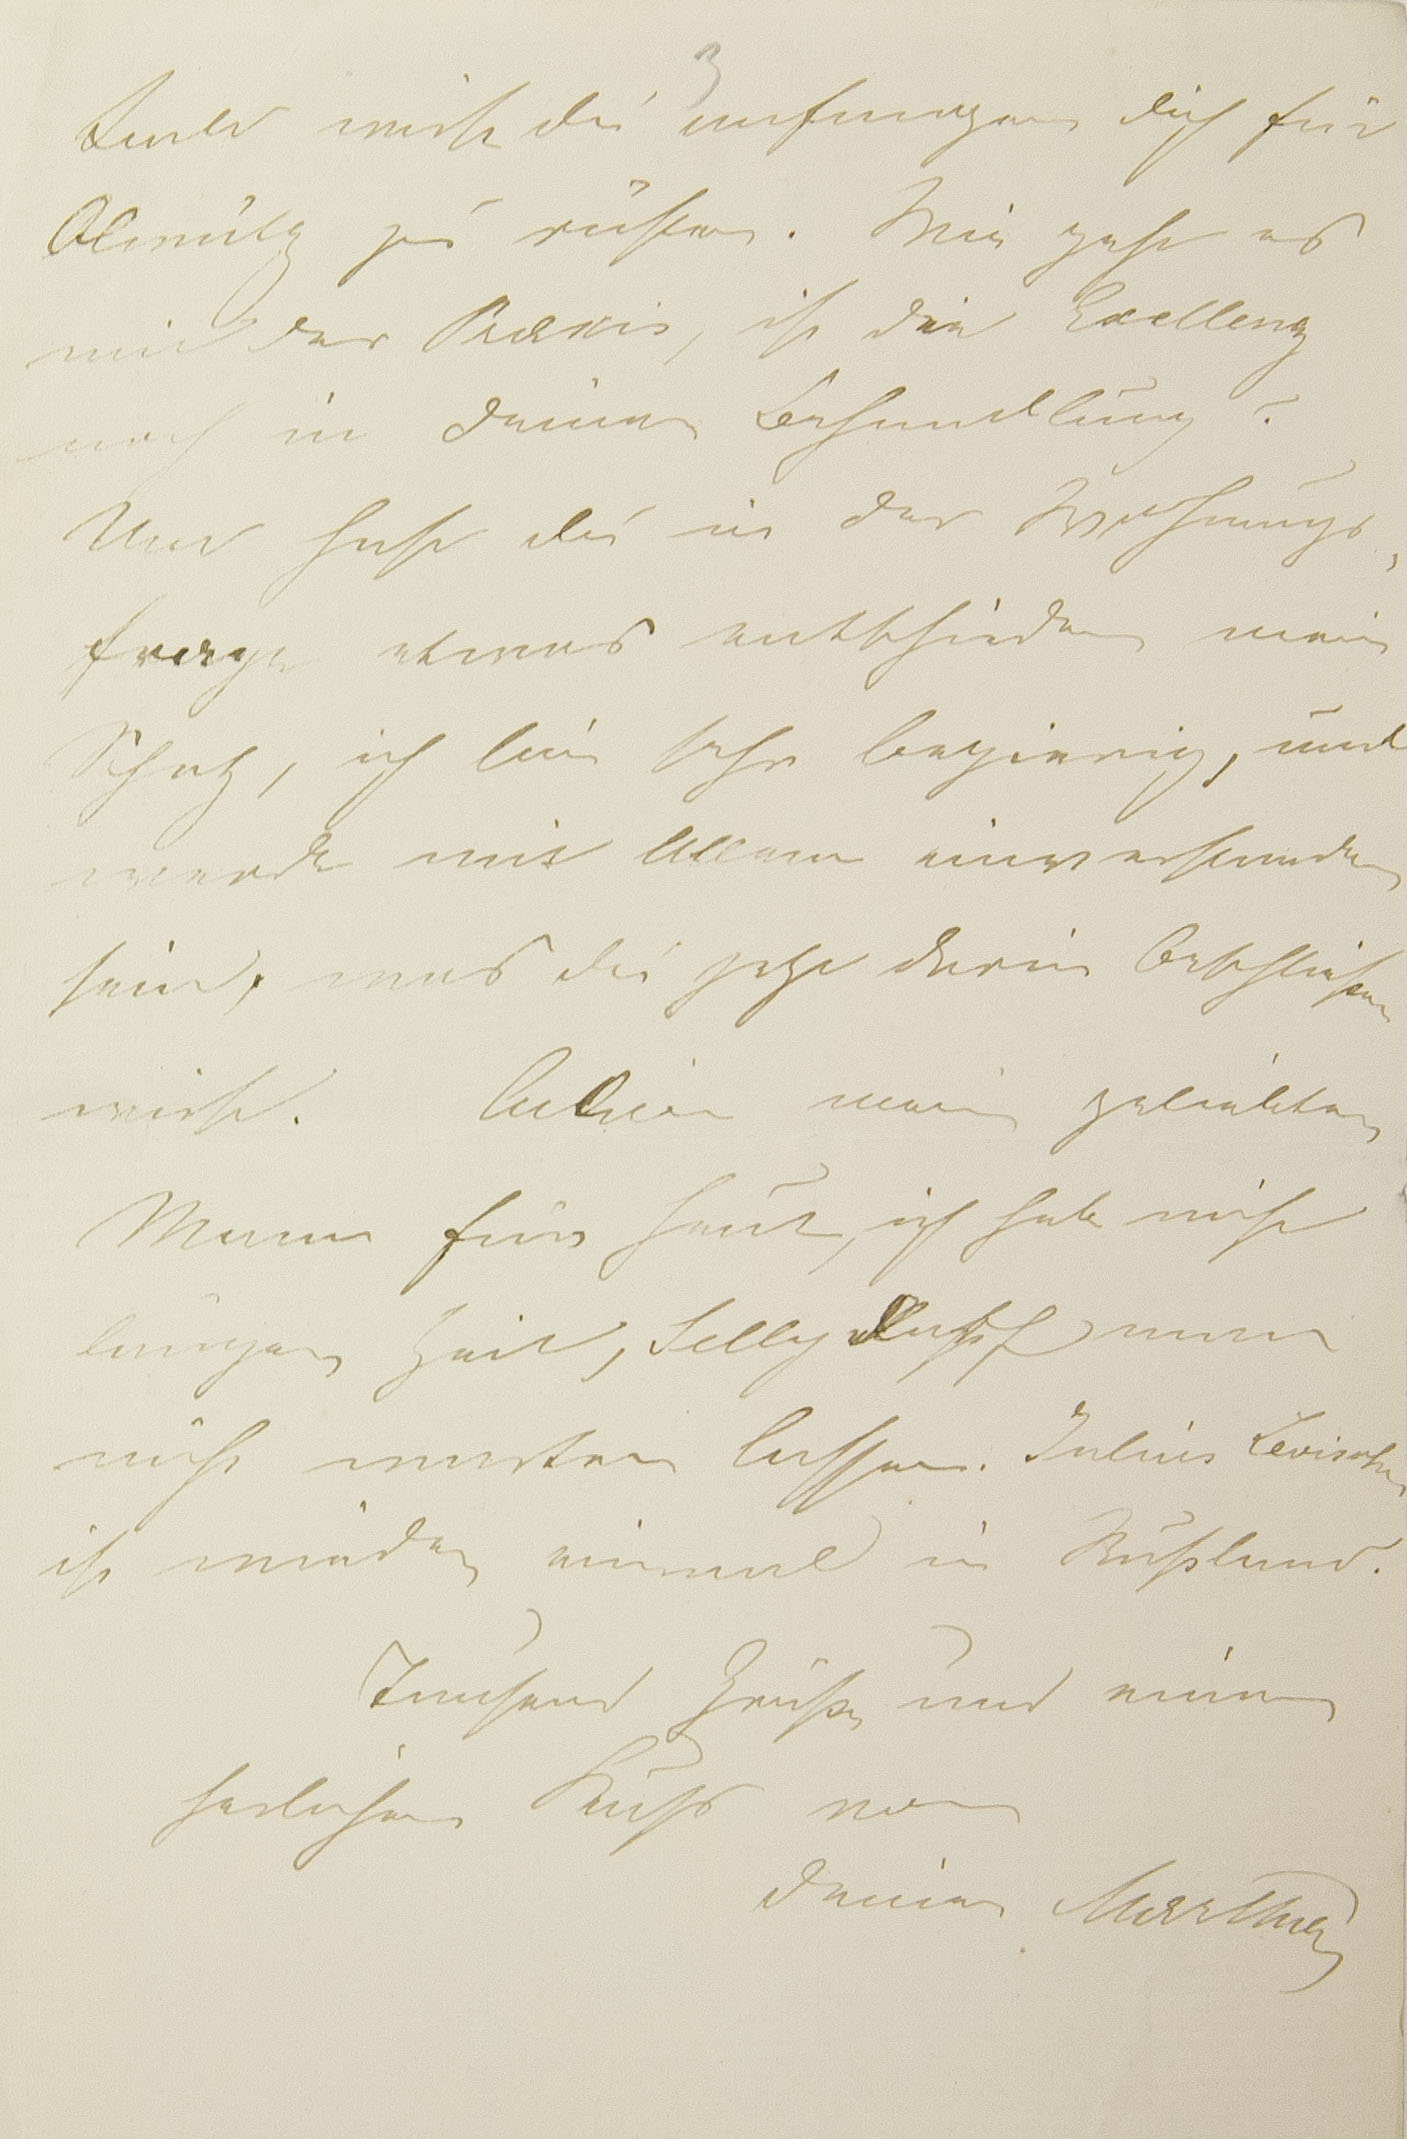 3
Bald wirst du anfangen dich für
Olmütz zu rüsten. Wie geht es
mit der Praxis, ist die Excellenz
noch in deiner Behandlung?
Und hast du in der Wohnungs-
frage etwas entschieden mein
Schatz, ich bin sehr begierig, und
werde mit Allem einverstanden
sein, was du jetzt darin beschließen
wirst. Adieu mein geliebter
Mann für heut, ich hab nicht
länger Zeit, Selly darf man
nicht warten lassen. Julius
ist wieder einmal in Rußland.
Tausend Grüße und einen
herzlichen Kuß von
deiner Martha